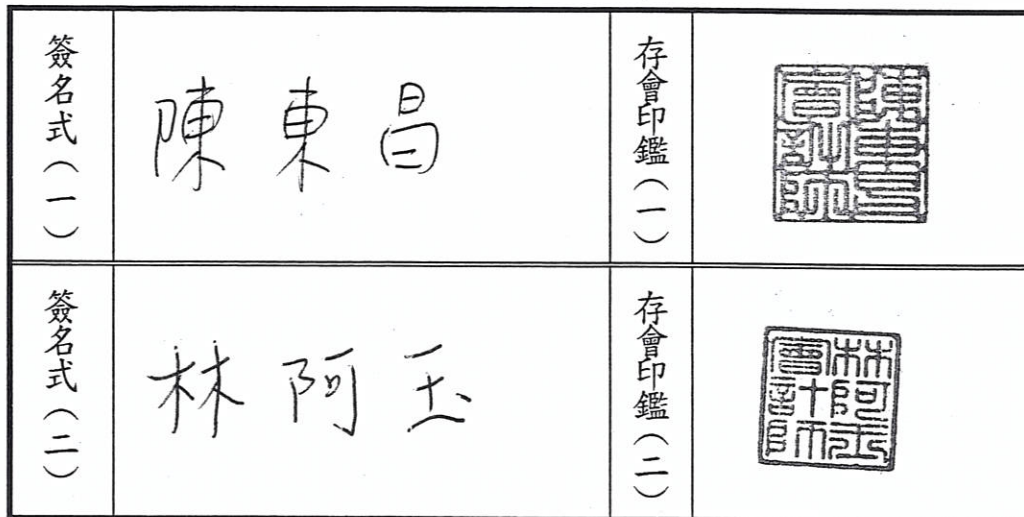 簽名式(一)
陳東昌
存會印鑑(一)
陳東昌
會計師
簽名式(二)
林阿玉
存會印鑑(二)
林阿玉
會計師